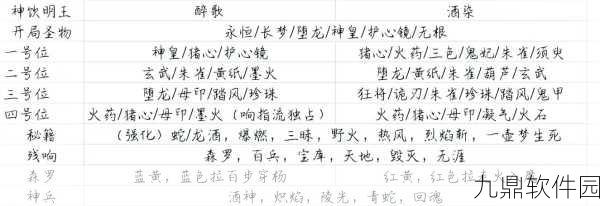 神饮明王 醉歌 酒染
开局圣物 永恒/长梦/堕龙/神皇/护心镜/无根
一号位 神皇/猪心/护心镜 猪心/火药/三色/鬼妃/朱雀/须臾
二号位 玄武/朱雀/黄纸/墨火 堕龙/黄纸/朱雀/葫芦/玄武
三号位 堕龙/母印/踏风/珍珠 狂将/诡刃/朱雀/珍珠/踏风/鬼甲
四号位 火药/猪心/母印/墨火(响指流独占) 火药/猪心/母印/凝气/火石
秘籍 (强化)蛇/龙酒,爆燃,三昧,野火,热风,烈焰斩,一壶梦生死
残响 森罗,百兵,宝库,天地,毁灭,无涯
森罗 蓝黄,蓝色拉百步穿杨 红黄,红色拉
神兵 酒神,炽焰,陵光,青蛇,回魂
九鼎软件园